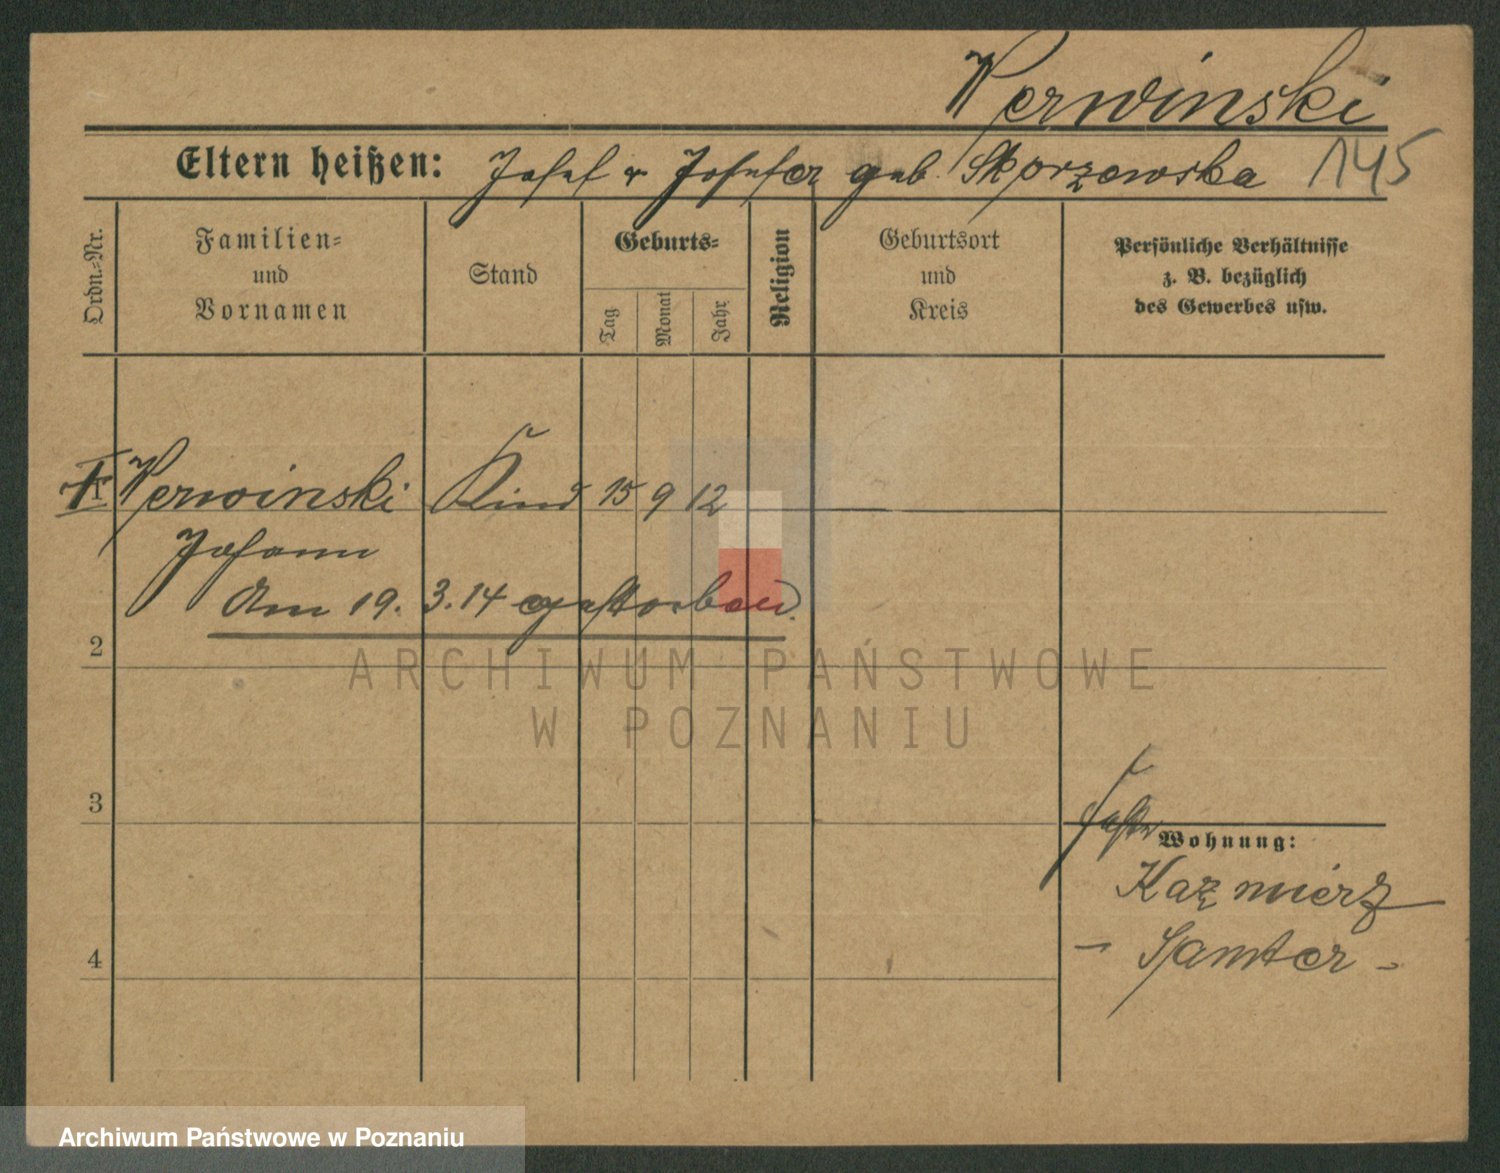 Nerwinski
Eltern heißen: Josef u Josefa geb. Skorzewska 145
Ordn.-Nr.
Familien-
und
Vornamen
Stand
Geburts-
Tag
Monat
Jahr
Religion
Geburtsort
und
Kreis
Persönliche Verhältnisse
z. B. bezüglich
des Gewerbes usw.
1 Nerwinski Kind 15 9 12
Johann
Am 19. 3. 14 gestorben.
2
ARCHIWUM PAŃSTWOWE
W POZNANIU
3
Wohnung:
Kazmierz
- Samter -
4
Archiwum Państwowe w Poznaniu